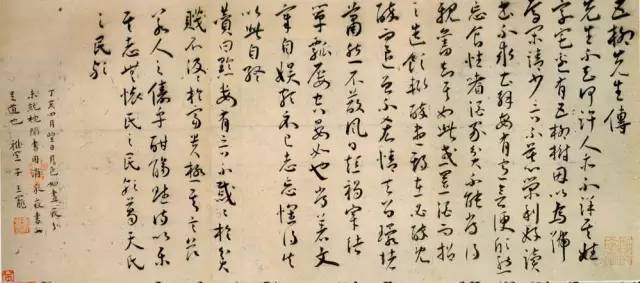 五柳先生傳
先生不知何許人亦不詳其姓
字宅邊有五柳樹因以為號
焉閑靖少言不慕榮利好讀
書不求甚解每有會意便欣然
忘食性嗜酒家貧不能常得
親舊知其如此或置酒而招
之造飲輒盡期在必醉既
醉而退曾不吝情去留環堵
蕭然不蔽風日短褐穿結
簞瓢屢空晏如也常著文
章自娛頗示己志忘懷得失
以此自終
贊曰黔婁有言不戚戚於貧
賤不汲汲於富貴極其言茲
若人之儔乎酣觴賦詩以樂
其志無懷氏之民歟葛天氏
之民歟
丁亥四月望日月色如晝夜分
未就枕
是道也 雅宜子王寵